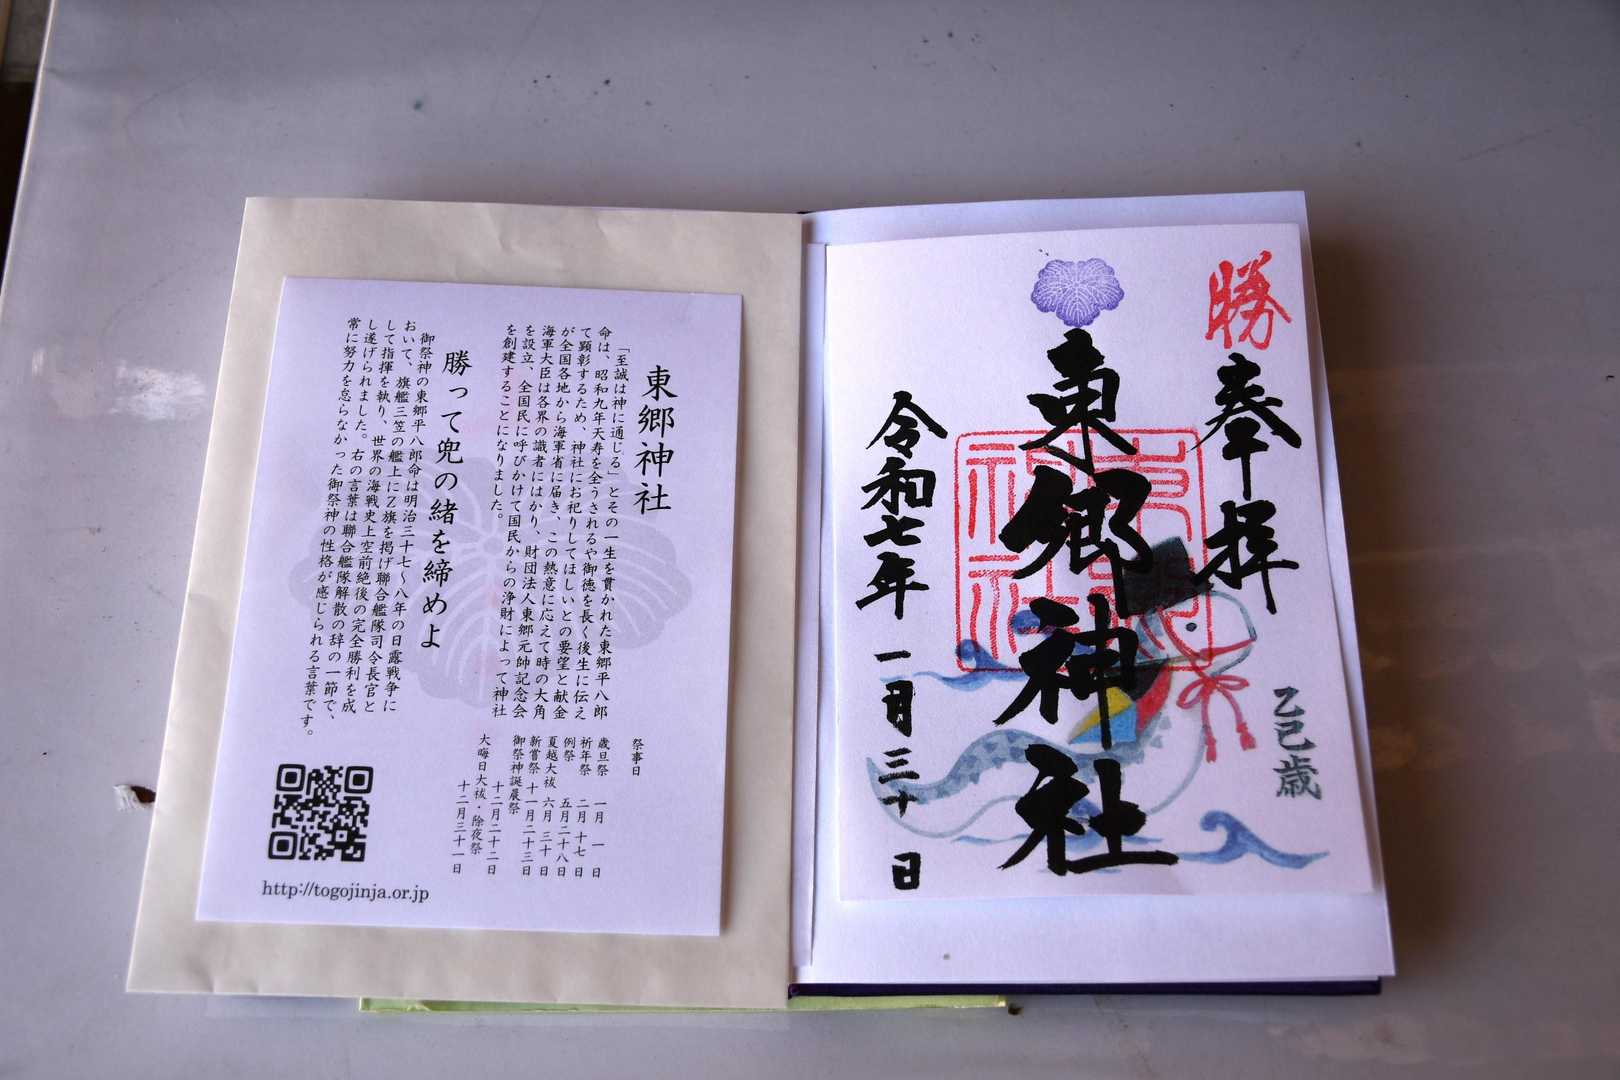 勝
奉拝
乙巳歳
東郷神社
令和七年 一月三十日
東郷神社
「至誠は神に通じる」とその一生を貫かれた東郷平八郎
命は、昭和九年天寿を全うされるや御徳を長く後生に伝え
て顕彰するため、神社にお祀りしてほしいとの要望と献金
が全国各地から海軍省に届き、この熱意に応えて時の大角
海軍大臣は各界の識者にはかり、財団法人東郷元帥記念会
を設立、全国民に呼びかけて国民からの浄財によって神社
を創建することになりました。
勝って兜の緒を締めよ
御祭神の東郷平八郎命は明治三十七〜八年の日露戦争に
おいて、旗艦三笠の艦上にZ旗を掲げ聯合艦隊司令長官と
して指揮を執り、世界の海戦史上空前絶後の完全勝利を成
し遂げられました。右の言葉は聯合艦隊解散の辞の一節で、
常に努力を怠らなかった御祭神の性格が感じられる言葉です。
祭事日
歳旦祭 一月 一日
祈年祭 二月 十七日
例祭 五月二十八日
夏越大祓 六月 三十日
新嘗祭 十一月二十三日
御祭神誕辰祭
十二月二十二日
大晦日大祓・除夜祭
十二月三十一日
http://togojinja.or.jp